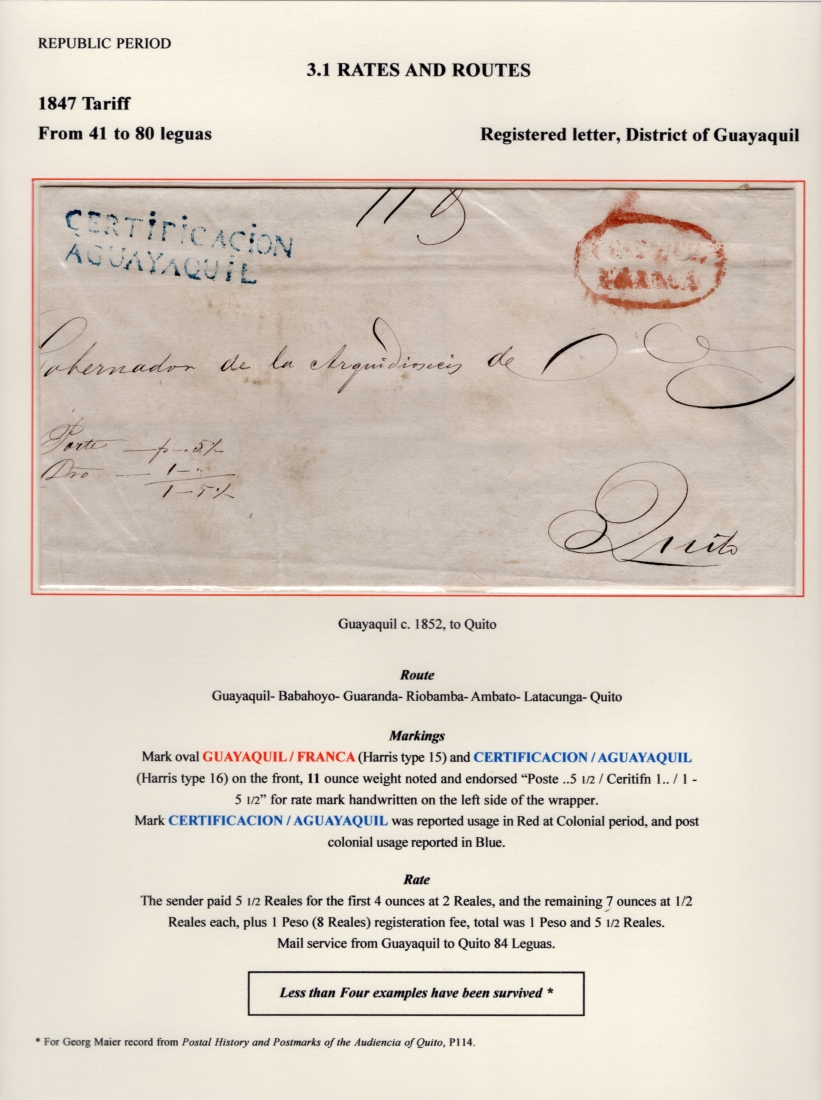 REPUBLIC PERIOD
3.1 RATES AND ROUTES
1847 Tariff
From 41 to 80 leguas
Registered letter, District of Guayaquil
11
CERTIFICACION
AGUAYAQUIL
FRANCA
Gobernador de la Arquidiosecis de
Porte — p..5½
1–"
1–5½
Quito
Guayaquil c. 1852, to Quito
Route
Guayaquil- Babahoyo- Guaranda- Riobamba- Ambato- Latacunga- Quito
Markings
Mark oval GUAYAQUIL / FRANCA (Harris type 15) and CERTIFICACION / AGUAYAQUIL
(Harris type 16) on the front, 11 ounce weight noted and endorsed “Poste ..5 1/2 / Ceritifn 1.. / 1 -
5 1/2” for rate mark handwritten on the left side of the wrapper.
Mark CERTIFICACION / AGUAYAQUIL was reported usage in Red at Colonial period, and post
colonial usage reported in Blue.
Rate
The sender paid 5 1/2 Reales for the first 4 ounces at 2 Reales, and the remaining 7 ounces at 1/2
Reales each, plus 1 Peso (8 Reales) registeration fee, total was 1 Peso and 5 1/2 Reales.
Mail service from Guayaquil to Quito 84 Leguas.
Less than Four examples have been survived *
* For Georg Maier record from Postal History and Postmarks of the Audiencia of Quito, P114.